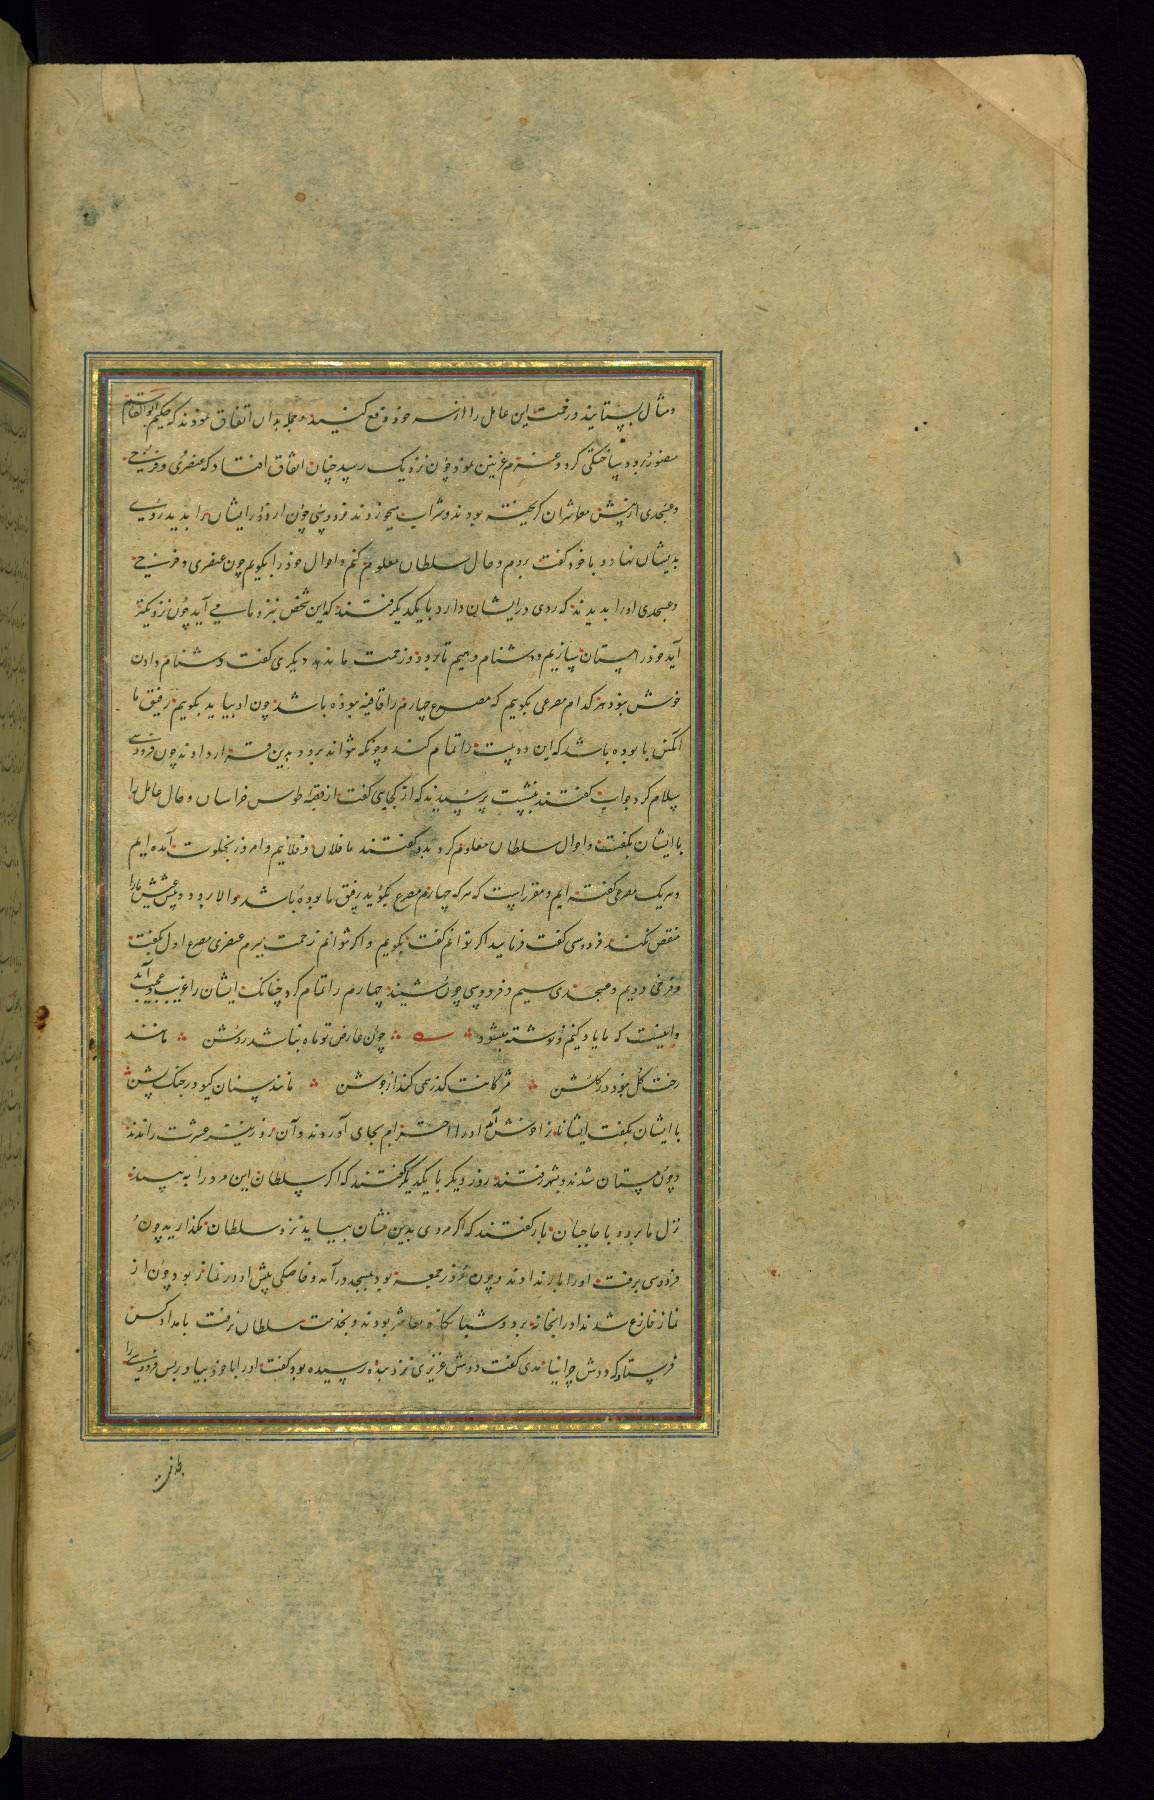 و مثال بستانید و رفت این عامل را از سر خود دفع کنید و جمله بدان اتفاق نمودند که حکیم ابوالقاسم
منصور برود ساختگی کرد و عزم غزنین نمود چون نزدیک رسید چنان اتفاق افتاد که عنصری و فرخی
و عسجدی از پیش معاشران گریخته بودند و شراب میخوردند فردوسی چون از دور ایشان را بدید روی
بدیشان نهاد و با خود گفت بروم و حال سلطان معلوم کنم و احوال خود را بگویم چون عنصری و فرخی
و عسجدی او را بدیدند که روی در ایشان دارد با یکدیگر گفتند که این شخص نزد ما می آید چون نزدیکتر
آید خود را مستان سازیم و دشنام دهیم تا برود و زحمت ما ندهد دیگری گفت دشنام دادن
خوش نبود هر کدام مصرعی بگویم که مصرع چهارم را قافیه نبوده باشد چون او بیاید بگویم رفیق ما
آنکس با بوده باشد که این دو بیت را تمام کند و چونکه نتواند برود بدین قرار دادند چون فردوسی
سلام کرد جواب گفتند بنشست پرسیدند که از کجایی گفت از فقرا طوس خراسان و حال عامل را
با ایشان بگفت و احوال سلطان معلوم کرد بدو گفتند ما فلان و فلانیم و امروز بخلوت آمده ایم
و هر یک مصرعی گفته ایم و مقرر است که هر که چهارم مصرع بگوید رفیق ما بوده باشد و الا برود و عیش ما را
منقص نکند فردوسی گفت فرمایید اگر توانم گفت بگویم و اگر نتوانم زحمت ببرم عنصری مصرع اول بگفت
و فرخی دویم و عسجدی سیم و فردوسی چون شنید چهارم را تمام کرد چنانک ایشان را غریب و عجب آمد
و اینست که ما یاد کنیم و نوشته میشود چون عارض تو ماه نباشد روشن مانند
رخت گل نبود در گلشن مژگانت گذر همی کند از جوشن مانند سنان گیو در جنگ پشن
با ایشان بگفت ایشانرا خوش آمد او را احترام بجای آوردند و آن روز نیز عشرت راندند
و چون مستان شدند و بشهر رفتند روز دیگر با یکدیگر گفتند که اگر سلطان این مرد را به بیند
نزل ما برود با حاجبان بار گفتند که اگر مردی بدین نشان بیاید نزد سلطان نگذارید چون
فردوسی برفت او را بار ندادند و چون روز جمعه بود بمسجد درآمد و خاصکی پیش او در نماز بود چون از
نماز فارغ شدند او را بخانه برد و شبانگاه معاشر بودند و بخدمت سلطان نرفت بامداد کس
فرستاد که دوش چرا نیامدی گفت دوش عزیزی نزد بنده رسیده بود گفت او را با خود بیاور پس فردوسی را